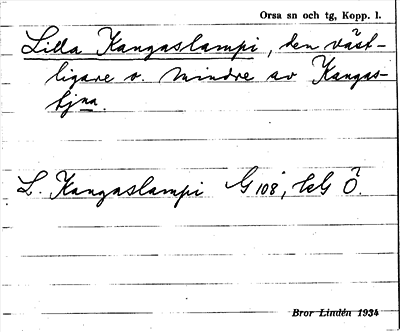 Orsa sn och tg, Kopp. l.
Lilla Kangaslampi, den väst-
ligare o. mindre av Kangas-
tjna.
L. Kangaslampi G 108, kG Ö.
Bror Lindén 1934